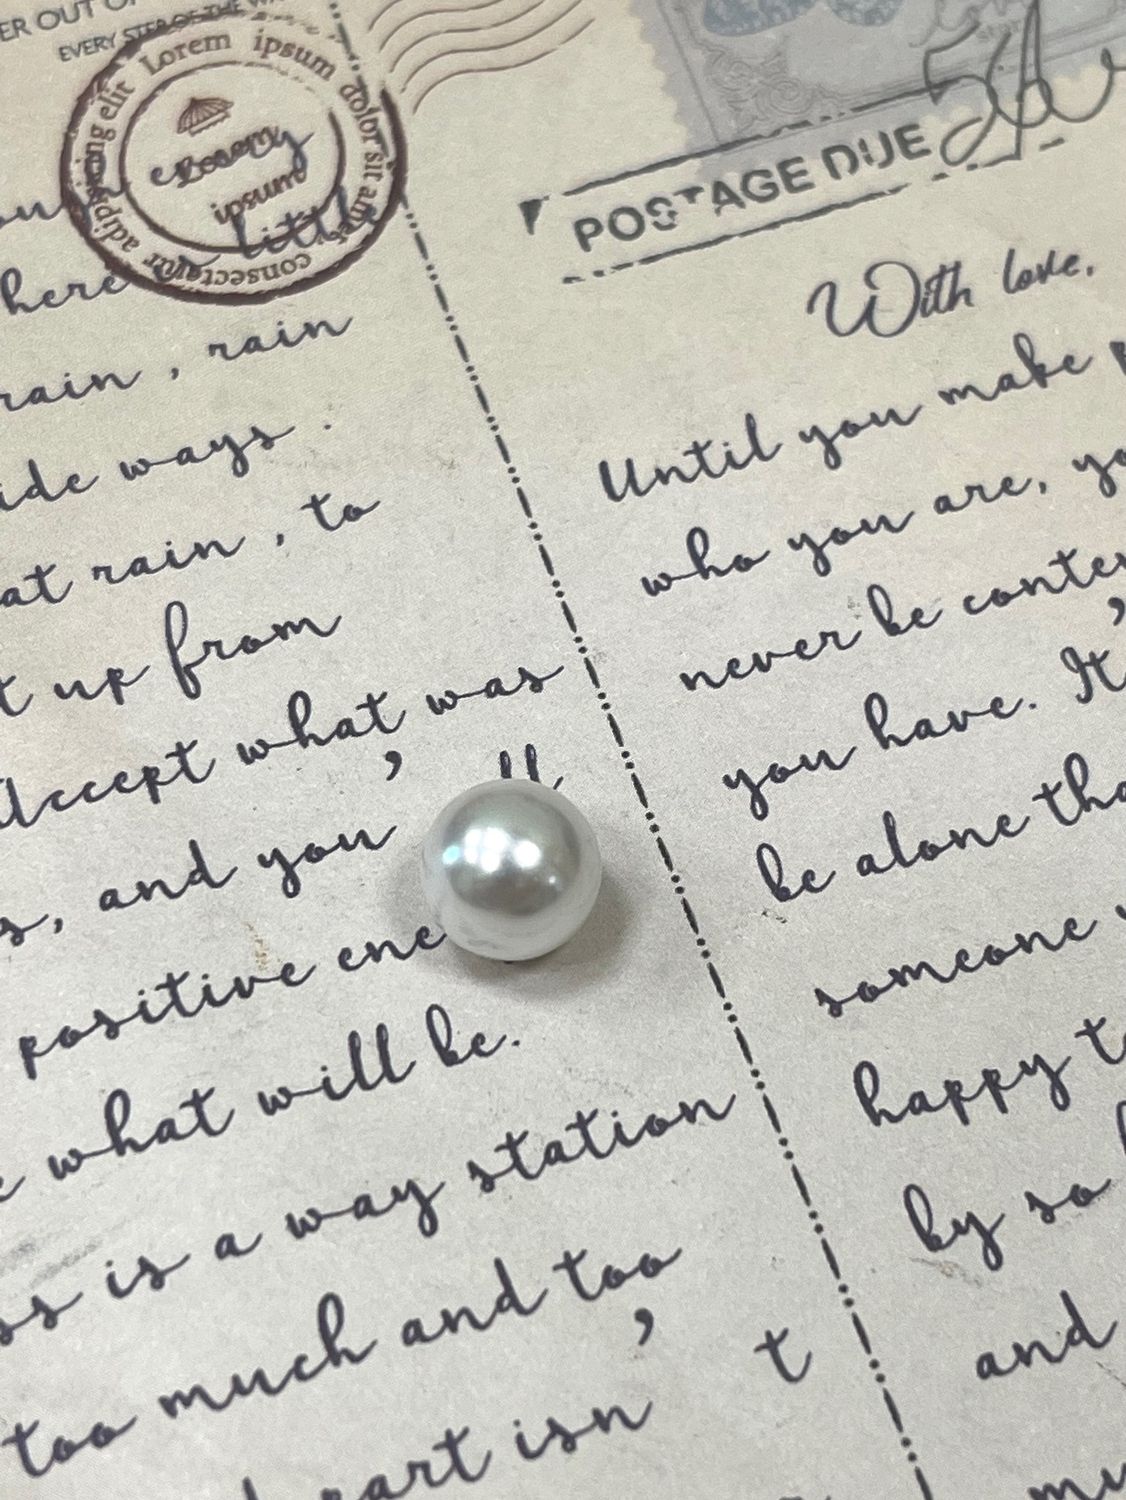 ER OUT OF
EVERY STEP OF THE
Lorem ipsum dolor sit amet, consectetur adipiscing elit
Lorem
ipsum
little
here
rain , rain
ide ways .
at rain , to
t up from
Accept what was
s, and you ’ ll
positive ene
what will be.
ss is a way station
too much and too
too
art isn ’ t
POSTAGE DUE
With love,
Until you make p
who you are, yo
never be conten
you have. It ’
be alone tha
someone
happy t
by so
and
mu